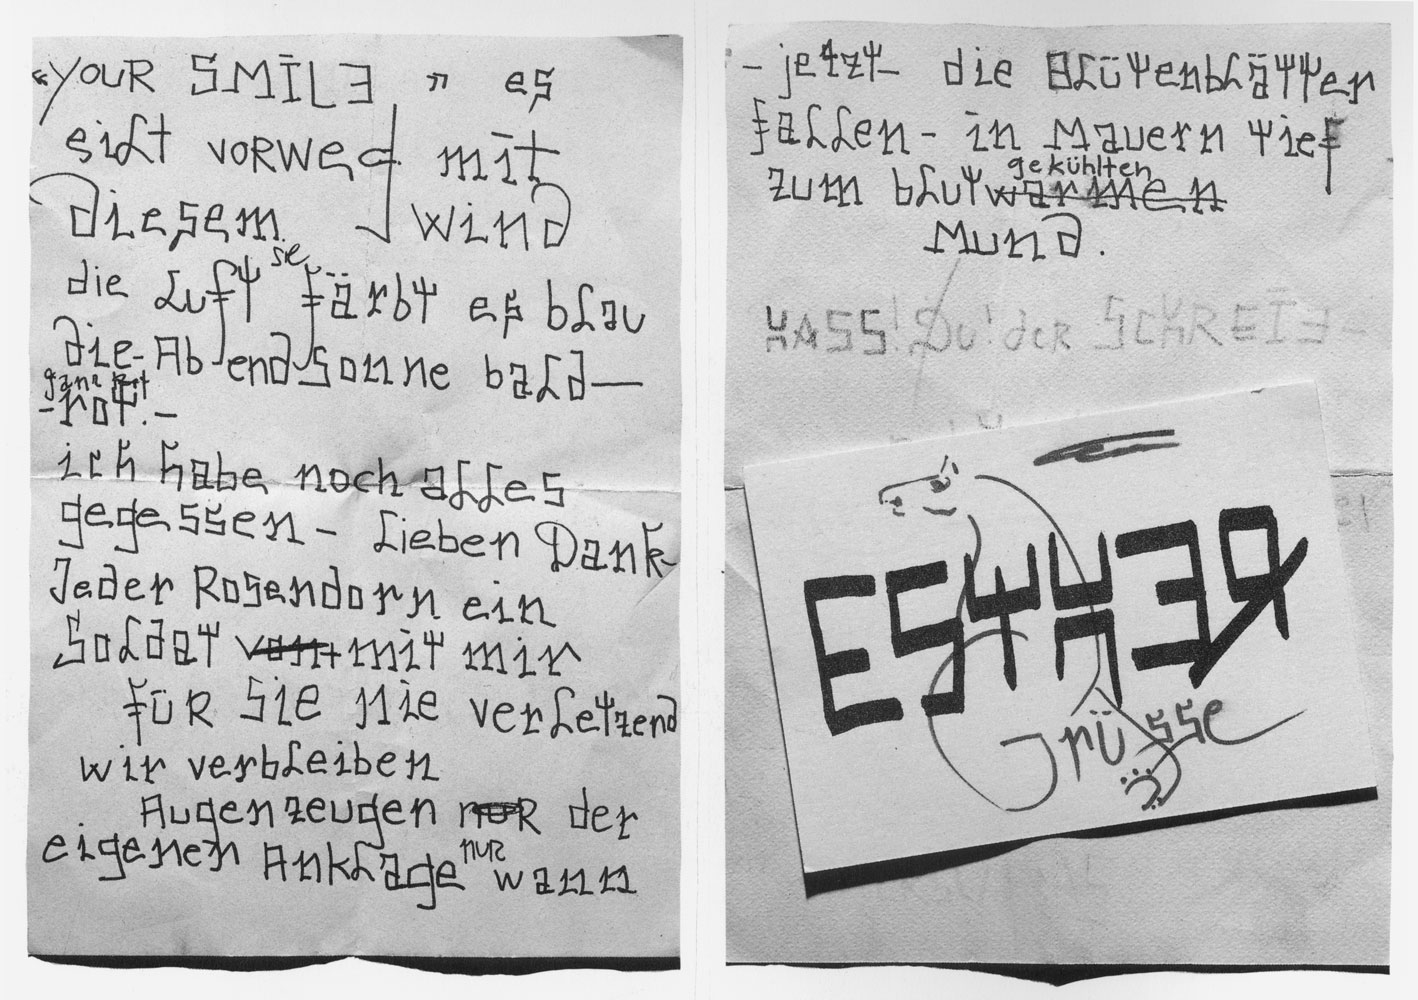 "YOUR SMĪLE" es
eilt vorweg mit
diesem Wind
die Luft sie färbt es blau
die Abendsonne bald—
ganz
-rot.-
ich habe noch alles
gegessen - Lieben Dank-
Jeder Rosendorn ein
Soldat von mit mir
FÜR SIE nie verletzend
wir verbleiben
Augenzeugen der
eigenen Anklage nur wann
- jetzt - die Blütenblätter
fallen - in Mauern tief
gekühlten
zum blutwarmen
Mund.
HASS! Du! der SCHREIE-
ESTHER
Grüsse